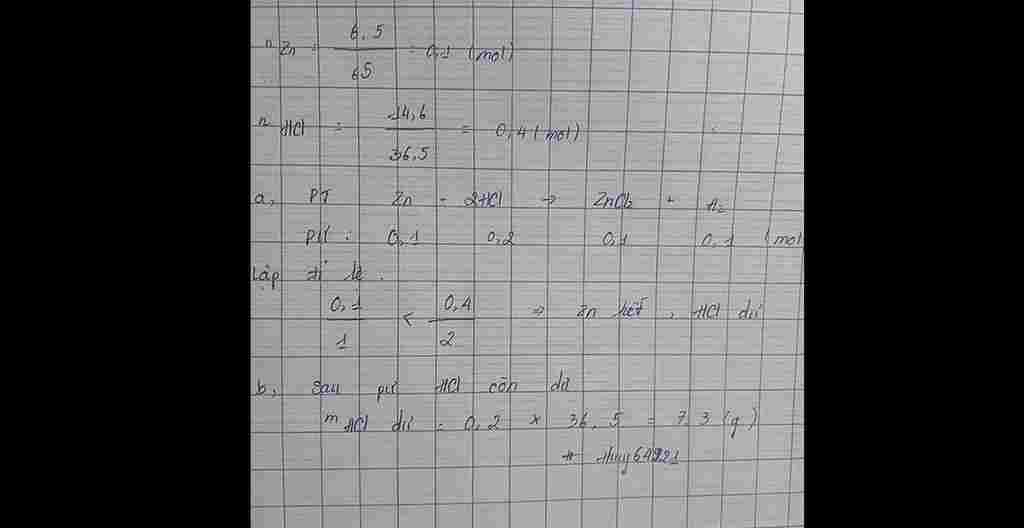 nZn = 6,5 / 65 = 0,1 (mol)
nHCl = 14,6 / 36,5 = 0,4 (mol)
a, PT Zn + 2HCl → ZnCl2 + H2
pứ : 0,1 0,2 0,1 0,1 (mol
Lập tỉ lệ :
0,1 / 1 < 0,4 / 2 ⇒ Zn hết, HCl dư
b, Sau pư HCl còn dư
mHCl dư = 0,2 × 36,5 = 7,3 (g)
# thuy64221